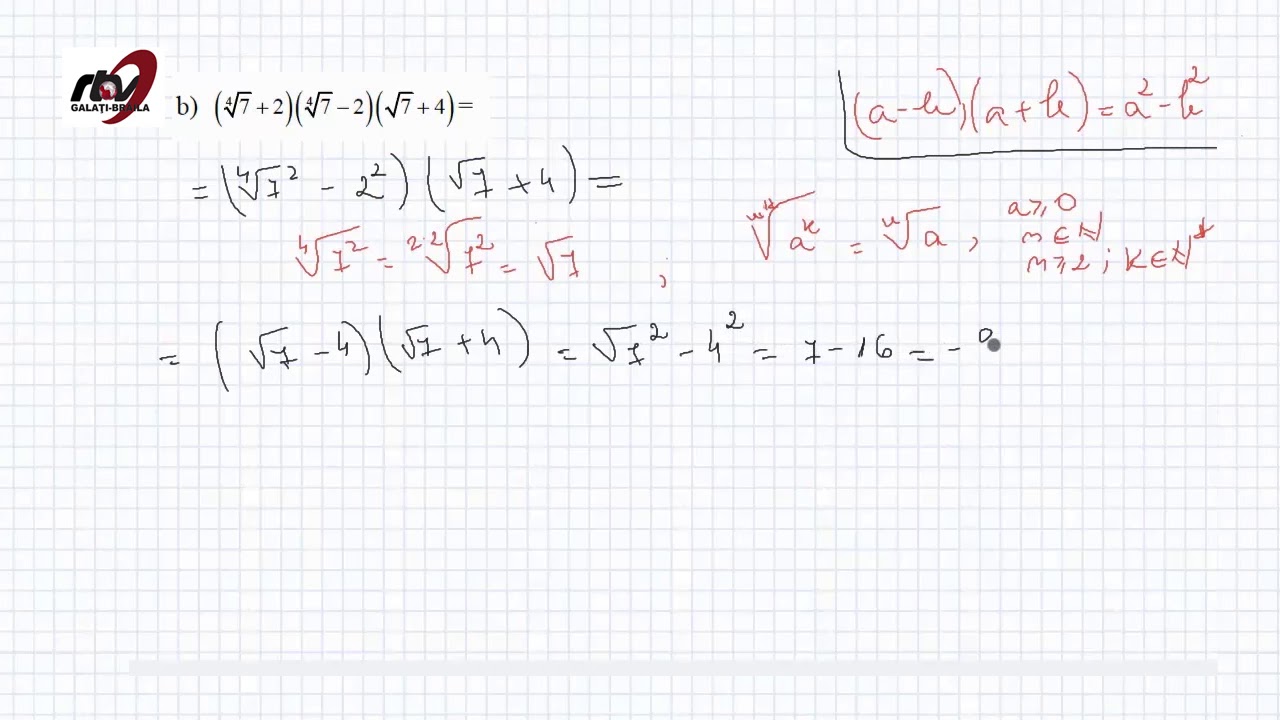 rtv
GALAȚI-BRĂILA
b) (∜7 + 2)(∜7 − 2)(√7 + 4) =
(a − b)(a + b) = a² − b²
= (∜7² − 2²)(√7 + 4) =
∜7² = ²·²√7² = √7 ;
ⁿᵏ√aᵏ = ⁿ√a , a ≥ 0
n ∈ ℕ
n ≥ 2 ; k ∈ ℕ*
= (√7 − 4)(√7 + 4) = √7² − 4² = 7 − 16 = −